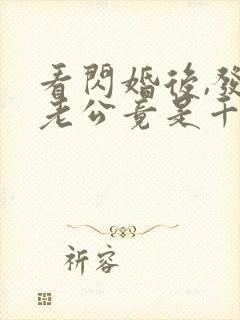 看閃婚後,發
老公竟是千
祈容